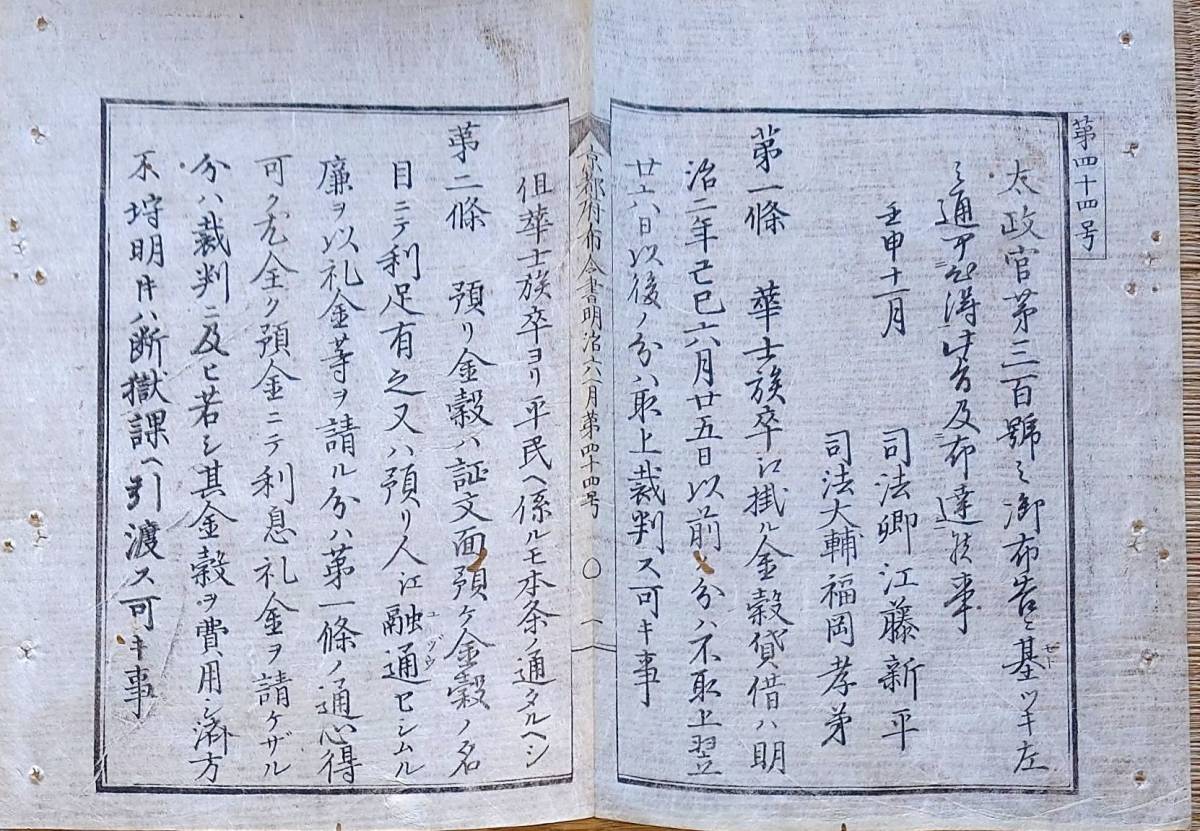 第四十四号
太政官第三百號ミ御布告ニ基ツキ左
ミ通可心得此旨及布達候事
壬申十一月
司法卿 江藤新平
司法大輔福岡孝弟
第一條 華士族卒江掛ル金穀貸借ハ明
治二年己巳六月廿五日以前ノ分ハ不取上翌
廿六日以後ノ分ハ取上裁判ス可キ事
京都府布令書明治六一月第四十四号 〇 一
但華士族卒ヨリ平民ヘ係ルモ本条ノ通タルヘシ
第二條 預リ金穀ハ証文面預ケ金穀ノ名
目ニテ利足有之又ハ預リ人江融通セシムル
廉ヲ以礼金等ヲ請ル分ハ第一條ノ通心得
可ク尤全ク預金ニテ利息礼金ヲ請ケザル
分ハ裁判ニ及ヒ若シ其金穀ヲ費用シ済方
不埒明キハ断獄課ヘ引渡ス可キ事